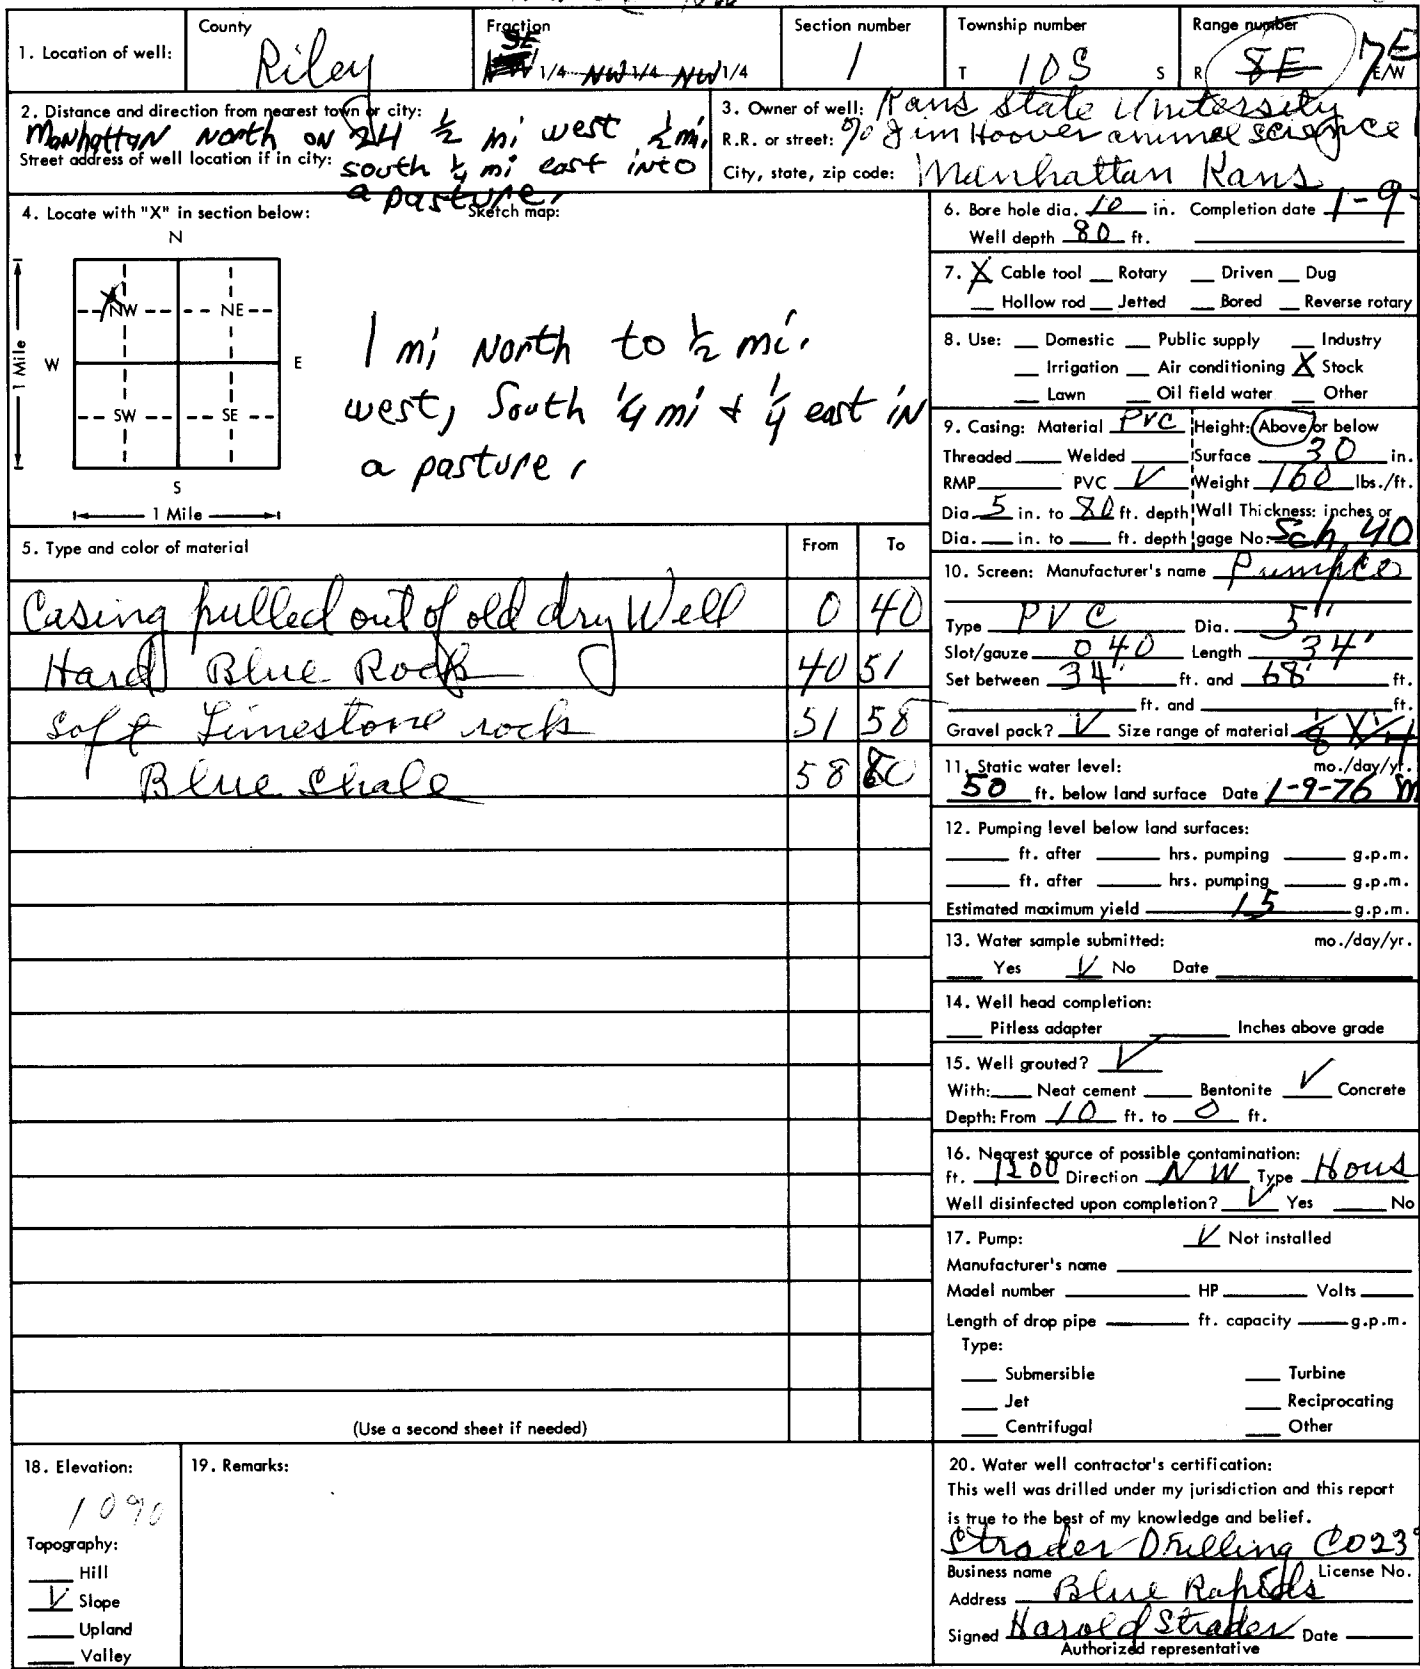 1. Location of well:
County
Riley
Fraction
SE 1/4 NW 1/4 NW 1/4
Section number
1
Township number
T 10S S
Range number
R 8E 7E E/W
2. Distance and direction from nearest town or city:
Manhattan North on 24 ½ mi west ½ mi,
Street address of well location if in city: south ¼ mi east into
a pasture,
3. Owner of well: Kans State University
R.R. or street: % Jim Hoover animal science
City, state, zip code: Manhattan Kans
4. Locate with "X" in section below:
Sketch map:
N
1 Mile
W
E
X
NW
NE
SW
SE
S
1 Mile
1 mi North to ½ mi.
west, South ¼ mi & ¼ east in
a pasture,
5. Type and color of material
From To
Casing pulled out of old dry Well 0 40
Hard Blue Rock 40 51
Soft Limestone rock 51 58
Blue Shale 58 80
(Use a second sheet if needed)
6. Bore hole dia. 10 in. Completion date 1-9-
Well depth 80 ft.
7. X Cable tool Rotary Driven Dug
Hollow rod Jetted Bored Reverse rotary
8. Use: Domestic Public supply Industry
Irrigation Air conditioning X Stock
Lawn Oil field water Other
9. Casing: Material PVC Height: Above or below
Threaded Welded Surface 30 in.
RMP PVC ✓ Weight 160 lbs./ft.
Dia. 5 in. to 80 ft. depth Wall Thickness: inches or
Dia. in. to ft. depth gage No. Sch. 40
10. Screen: Manufacturer's name Pumpco
Type PVC Dia. 5"
Slot/gauze 040 Length 34'
Set between 34' ft. and 68' ft.
ft. and ft.
Gravel pack? ✓ Size range of material 1/8 X 1/4
11. Static water level: mo./day/yr.
50 ft. below land surface Date 1-9-76
12. Pumping level below land surfaces:
ft. after hrs. pumping g.p.m.
ft. after hrs. pumping g.p.m.
Estimated maximum yield 15 g.p.m.
13. Water sample submitted: mo./day/yr.
Yes ✓ No Date
14. Well head completion:
Pitless adapter Inches above grade
15. Well grouted? ✓
With: Neat cement Bentonite ✓ Concrete
Depth: From 10 ft. to 0 ft.
16. Nearest source of possible contamination:
ft. 1200 Direction NW Type Hous
Well disinfected upon completion? ✓ Yes No
17. Pump: ✓ Not installed
Manufacturer's name
Model number HP Volts
Length of drop pipe ft. capacity g.p.m.
Type:
Submersible Turbine
Jet Reciprocating
Centrifugal Other
18. Elevation:
1090
Topography:
Hill
✓ Slope
Upland
Valley
19. Remarks:
20. Water well contractor's certification:
This well was drilled under my jurisdiction and this report
is true to the best of my knowledge and belief.
Strader Drilling Co 23
Business name License No.
Address Blue Rapids
Signed Harold Strader Date
Authorized representative